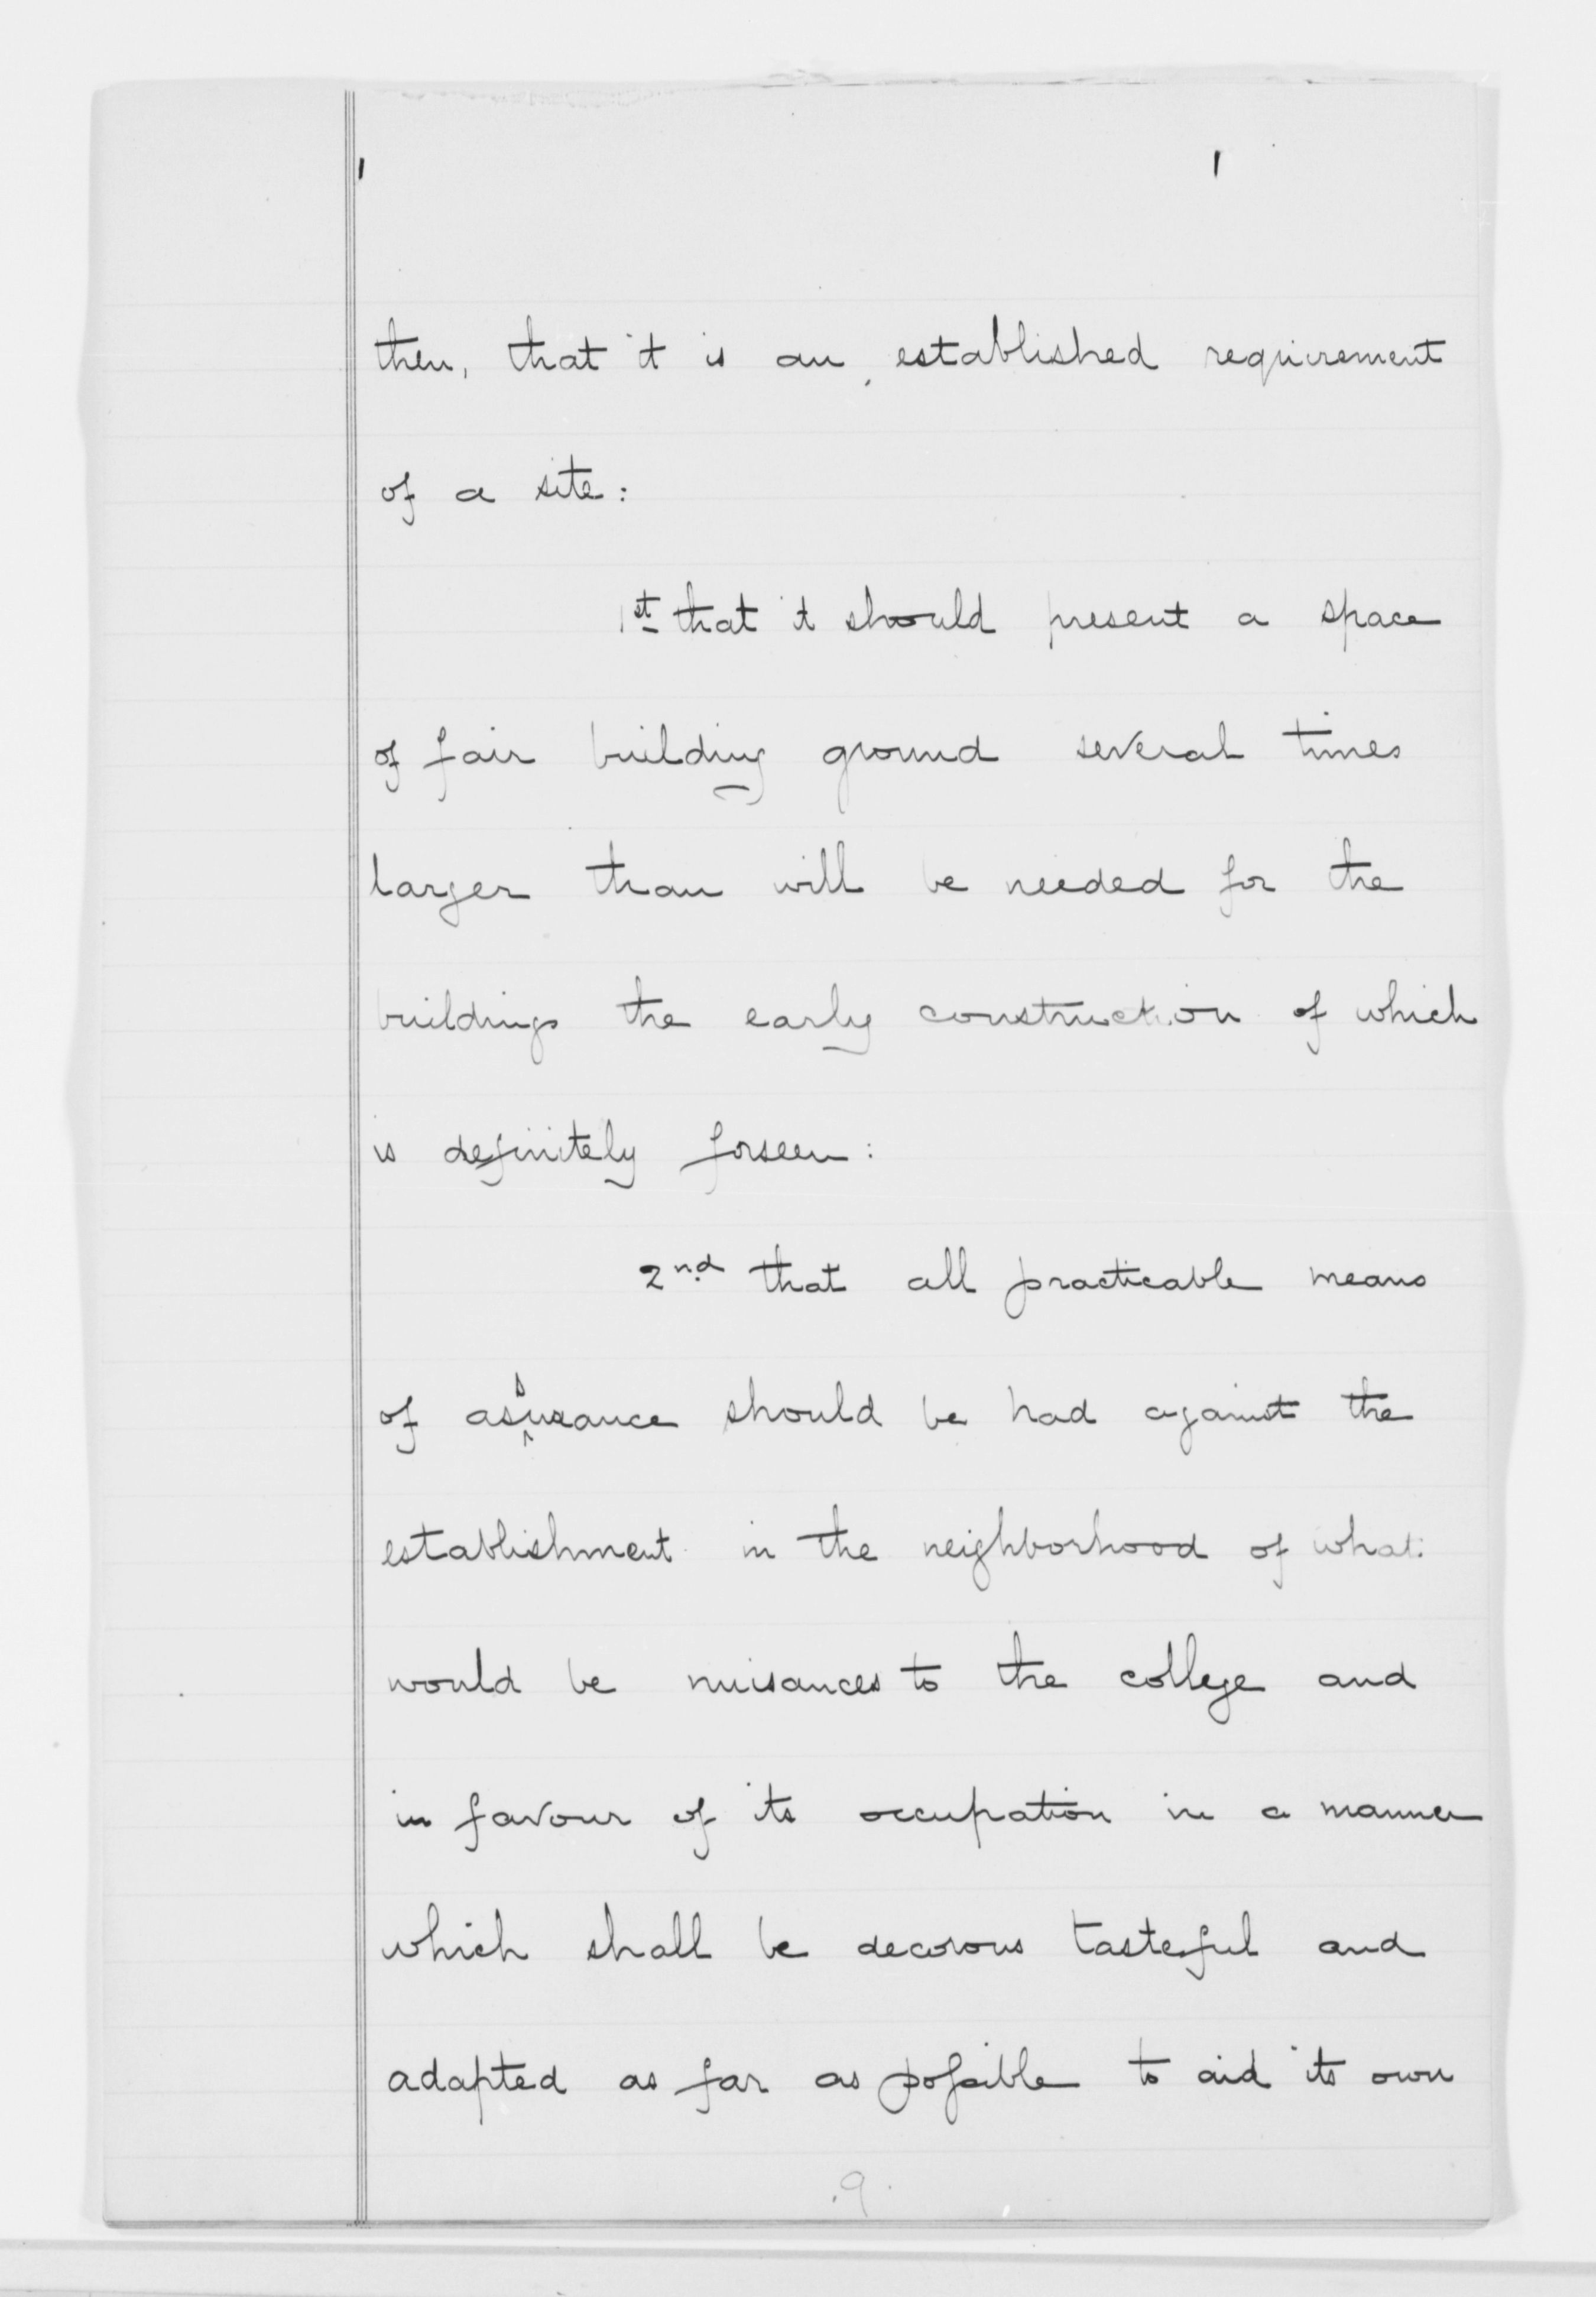 then, that it is an established requirement
of a site:
1st that it should present a space
of fair building ground several times
larger than will be needed for the
buildings the early construction of which
is definitely forseen:
2nd that all practicable means
of assurance should be had against the
establishment in the neighborhood of what
would be nuisances to the college and
in favour of its occupation in a manner
which shall be decorous tasteful and
adapted as far as possible to aid its own
9